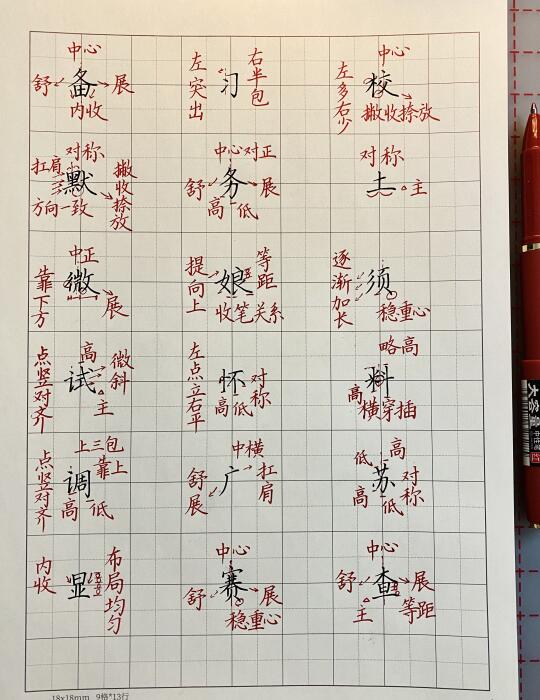 中心
舒 备 展
内收
左突出 习 右半包
中心
左多右少 校
撇收捺放
对称
扛肩 默 撇收捺放
方向一致
中心对正
舒 务 展
高 低
对称
土 主
中正
靠下方 微 展
提向上 娘 等距
收笔关系
逐渐加长 须
稳重心
高
点竖对齐 试 微斜
主
左点立右平 怀 对称
高低
略高
料
高 横穿插
上三包
点竖对齐 调 靠上
高 低
中横
广 扛肩
舒展
低 高
苏 对称
高 低
内收 显 布局均匀
中心
舒 赛 展
稳重心
中心
舒 查 展
主 等距
大容量
中性笔
18x18mm 9格*13行